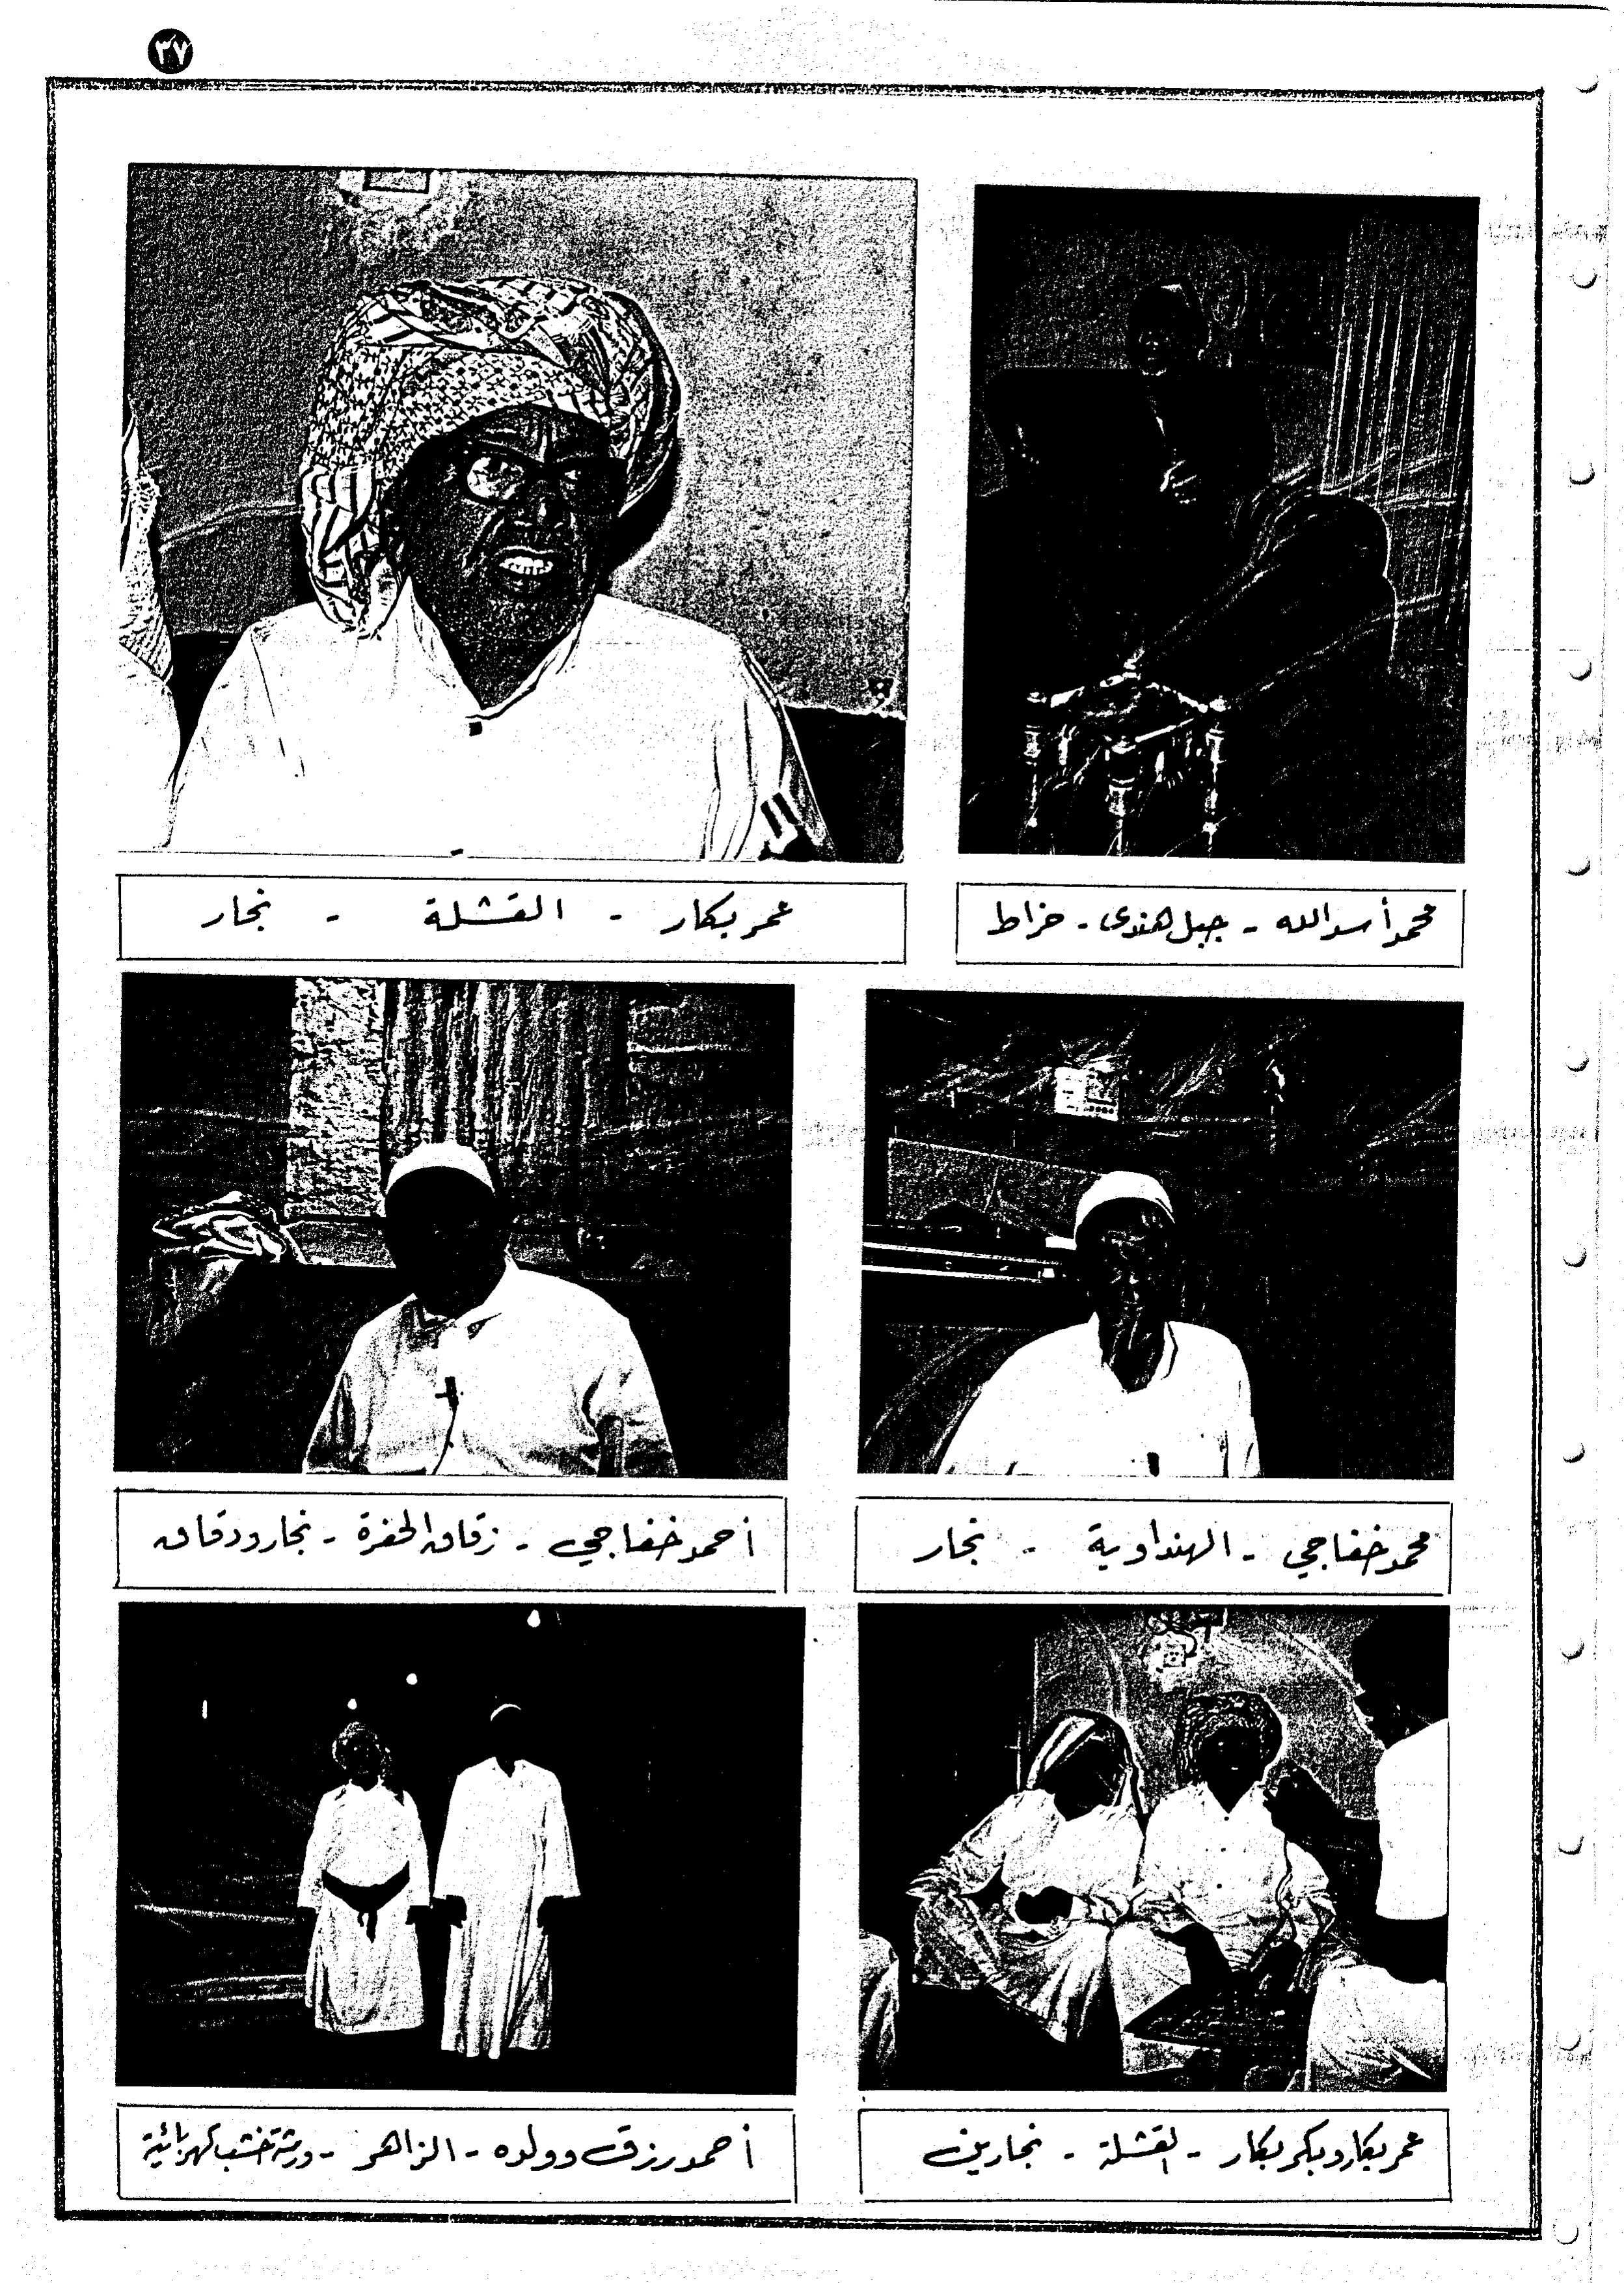 ٣٧
محمد أسد الله - جبل هندى - خراط
عمر بكار - القشلة - نجار
محمد خفاجي - الهنداوية - نجار
أحمد خفاجي - زقاق الحفرة - نجار ودقاق
عمر بكار وبكر بكار - القشلة - نجارين
أحمد رزق وولده - الزاهر - ورشة خشب كهربائية